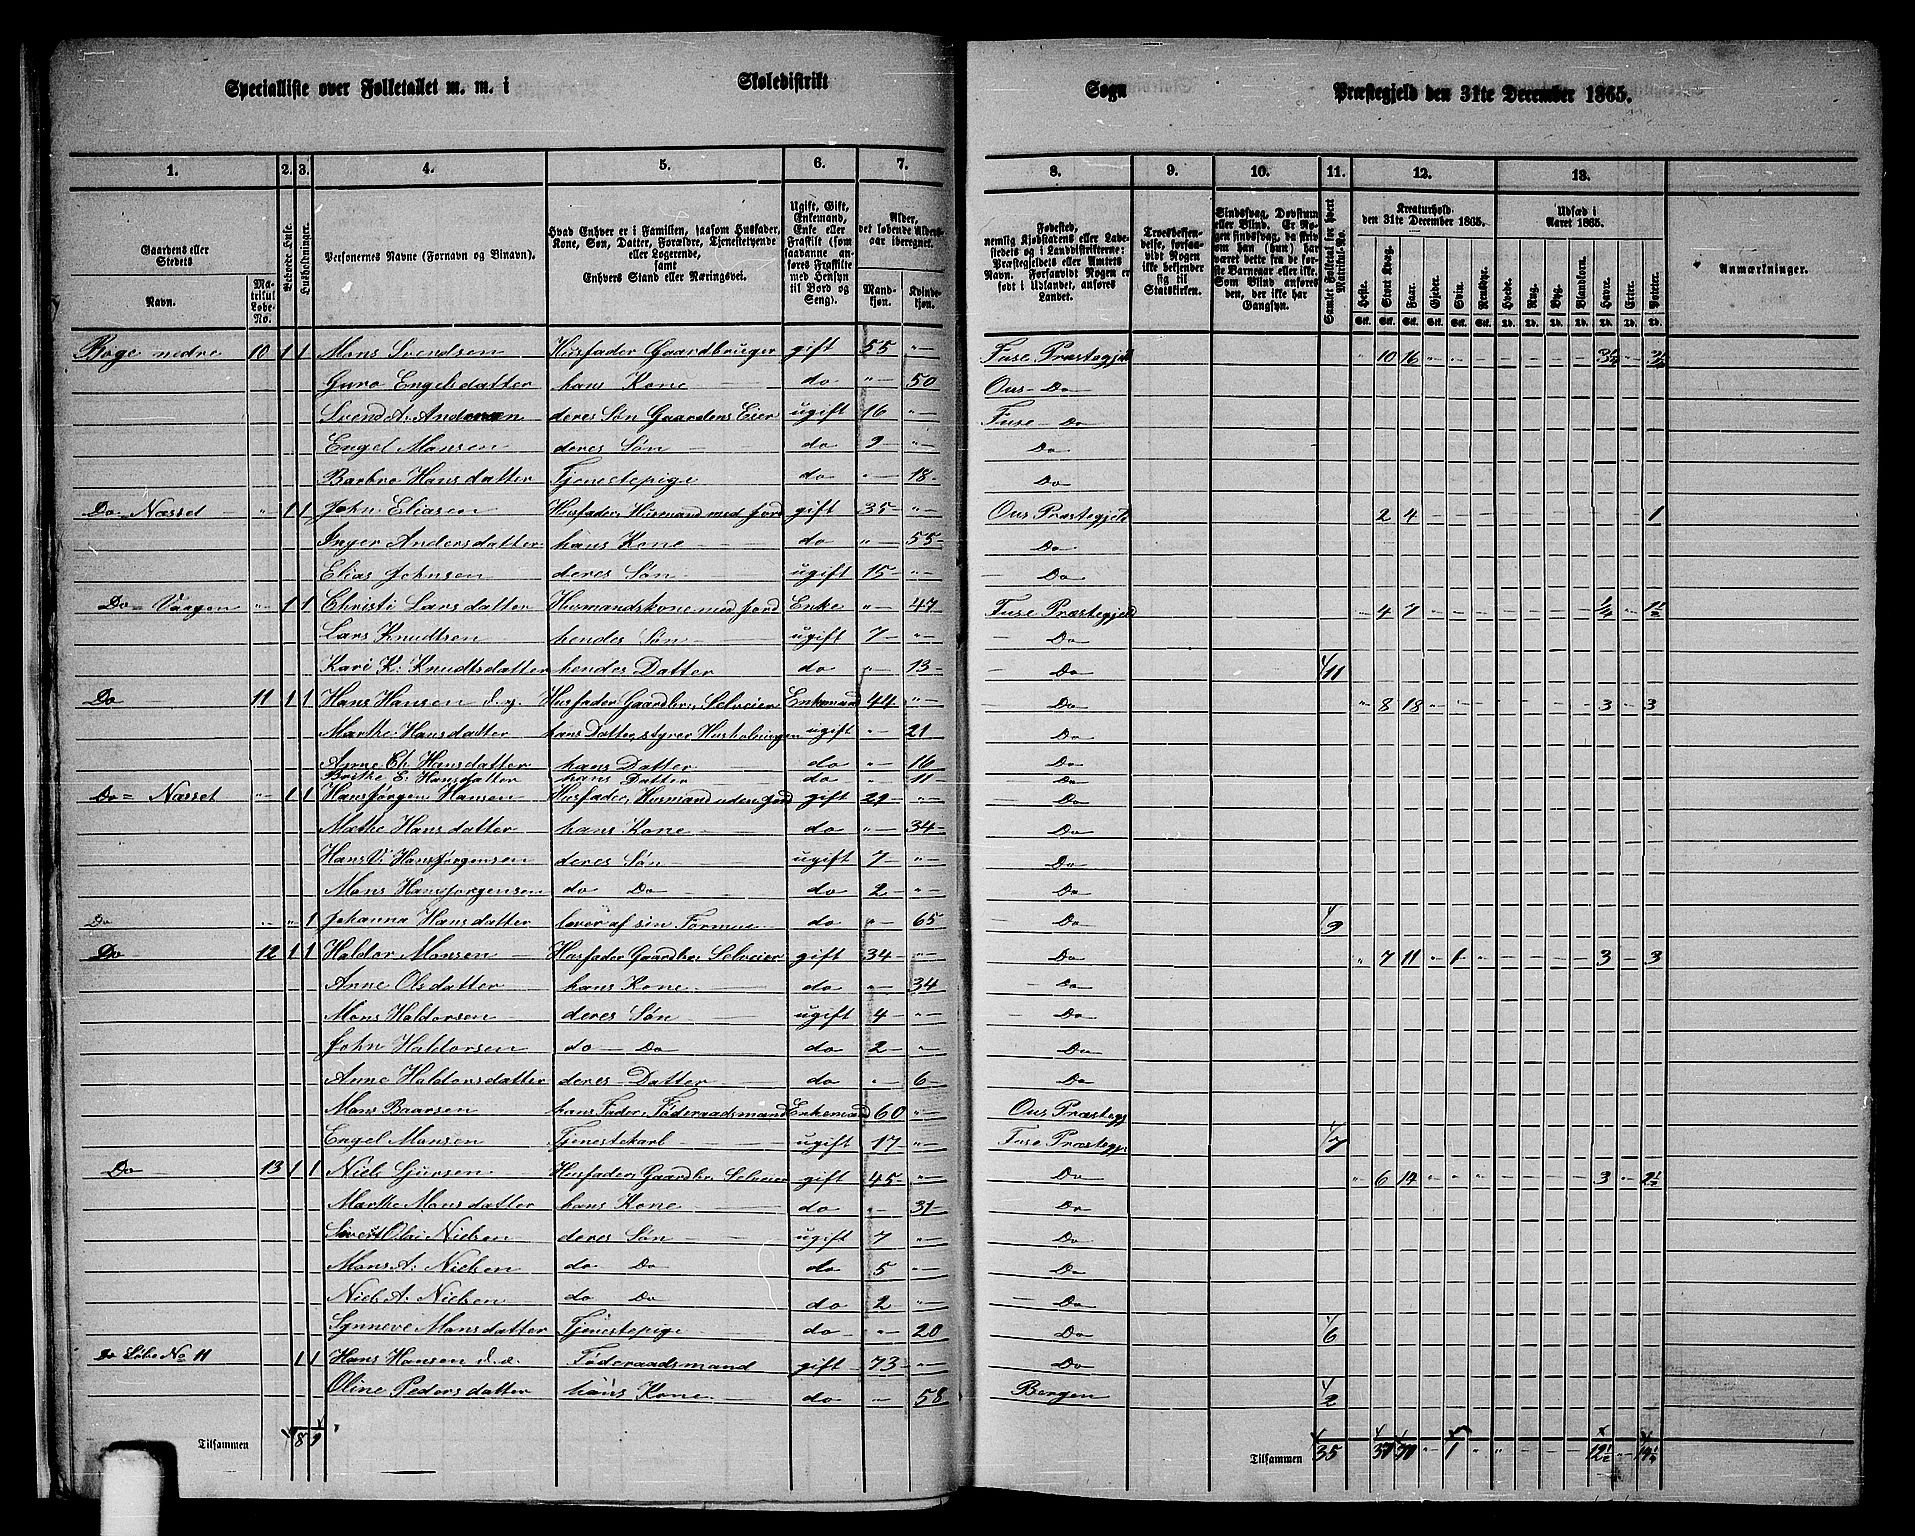 Specialliste over Folketallet m. m. i Skoledistrikt Sogn Præstegjeld den 31te December 1865.
1. 2. 3. 4. 5. 6. 7. 8. 9. 10. 11. 12. 13.
Gaardens eller Stedets Navn.
Matrikul Løbe-No.
Beboede Huse.
Husholdninger.
Personernes Navne (Fornavn og Binavn).
Hvad Enhver er i Familien, saasom Husfader, Kone, Søn, Datter, Forældre, Tjenestetyende eller Logerende, samt Enhvers Stand eller Næringsvei.
Ugift, Gift, Enkemand, Enke eller Fraskilt (som saadanne anføres Fraskilte med Hensyn til Bord og Seng).
Alder, det løbende Aldersaar iberegnet.
Mandkjøn. Kvindekjøn.
Fødested, nemlig Kjøbstadens eller Ladestedets og i Landdistrikterne: Præstegjeldets eller Amtets Navn. Forsaavidt Nogen er født i Udlandet, anføres Landet.
Troesbekjendelse, forsaavidt Nogen ikke bekjender sig til Statskirken.
Sindssvag, Døvstum eller Blind. Er Nogen sindssvag, da hvorvidt han (hun) har været dette fra de første Barneaar eller ikke. Som Blind anføres den, der ikke har Gangsyn.
Samlet Folketal for hvert Matrikul-No.
Kreaturhold den 31te December 1865.
Heste. Stort Kvæg. Faar. Gjeder. Svin. Rensdyr.
Udsæd i Aaret 1865.
Hvede. Rug. Byg. Blandkorn. Havre. Erter. Poteter.
Anmærkninger.
Boge nedre 10 1 1 Mons Svendsen Husfader Gaardbruger gift 55 " Fuse Præstegjeld " 10 16 " " 3½ " 3½
Guro Engelsdatter hans Kone do " 50 Ous Do
Svend A. Andersen deres Søn Gaardens Eier ugift 16 " Fuse Do
Engel Monsen deres Søn do 9 " Do
Barbro Hansdatter Tjenestepige do " 18 Do
Do Næsset " 1 1 John Eliasen Husfader, Husmand med Jord gift 35 " Ous Præstegjeld 2 4 1
Inger Andersdatter hans Kone do " 55 Do
Elias Johnsen deres Søn ugift 15 " Do
Do Vaagen " 1 1 Christi Larsdatter Husmandskone med Jord Enke " 47 Fuse Præstegjeld " 4 7 ¼ " 1½
Lars Knudtsen hendes Søn ugift 7 " Do
Kari K. Knudtsdatter hendes Datter do " 13 Do 11
Do 11 1 1 Hans Hansen d. y. Husfader Gaardbr. Selveier Enkemand 44 " Do " 8 18 3 3
Marthe Hansdatter hans Datter, styrer Husholningen ugift " 21 Do
Anne Ch. Hansdatter hans Datter do " 16 Do
Brithe E. Hansdatter hans Datter do " 11 Do
Do Næsset " 1 1 Hansjørgen Hansen Husfader, Husmand uden Jord gift 29 " Do
Mathe Hansdatter hans Kone do " 34 Do
Hans V. Hansjørgensen deres Søn ugift 7 " Do
Mons Hansjørgensen do Do do 2 " Do
Do " " 1 Johanna Hansdatter lever af sin Formue do " 65 Do 9
Do 12 1 1 Haldor Monsen Husfader Gaardbr. Selveier gift 34 " Do " 7 11 " 1 3 3
Anne Olsdatter hans Kone do " 34 Do
Mons Haldorsen deres Søn ugift 4 " Do
John Haldorsen do Do do 2 " Do
Anne Haldorsdatter deres Datter do " 6 Do
Mons Baarsen hans Fader, Føderaadsmand Enkemand 60 " Ous Præstegj
Engel Monsen Tjenestekarl ugift 17 " Fuse Præstegj 7
Do 13 1 1 Niels Sjursen Husfader Gaardbr. Selveier gift 45 " Do " 6 14 3 2½
Marthe Monsdatter hans Kone do " 31 Do
Sivert Olai Nielsen deres Søn ugift 7 " Do
Mons A. Nielsen do Do do 5 " Do
Niels A. Nielsen do Do do 2 " Do
Synneve Monsdatter Tjenestepige do " 20 Do 6
Do Løbe No 11 1 1 Hans Hansen d. æ. Føderaadsmand gift 73 " Do
Oline Pedersdatter hans Kone do " 58 Bergen 2
Tilsammen 8 9
Tilsammen 35 37 70 " 1 " " 12½